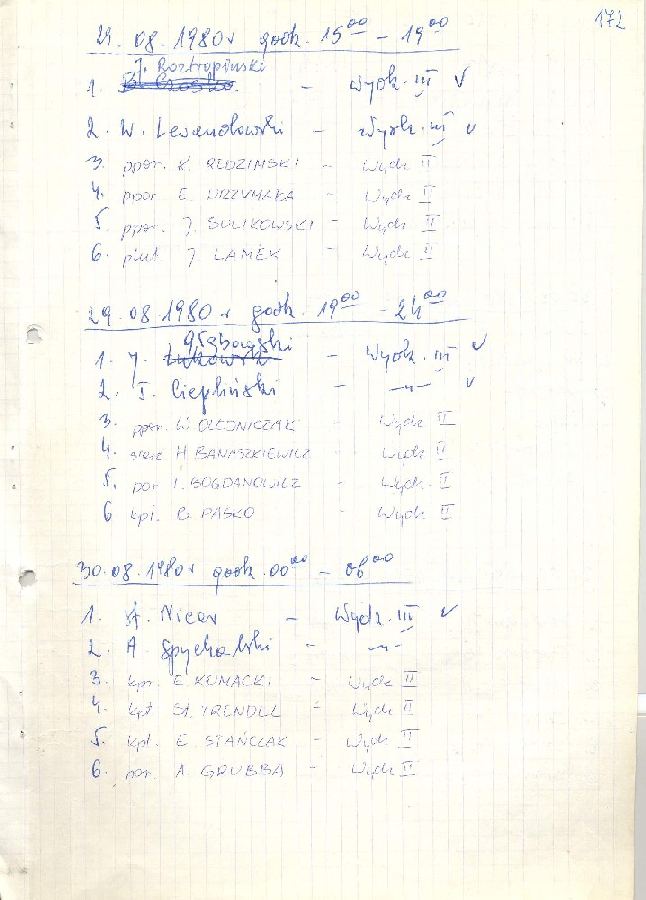 172
29.08.1980r godz. 15⁰⁰ - 19⁰⁰
J. Roztropiński
1. - Wydz. III ✓
2. W. Lewandowski - Wydz. III ✓
3. ppor. K. REDZIMSKI - Wydz II
4. ppor E. URZYMAŁA - Wydz II
5. ppor. J. SULIKOWSKI - Wydz II
6. plut J. LAMEK - Wydz II
29.08.1980r godz. 19⁰⁰ - 24⁰⁰
Głębowski
1. J. - Wydz. III ✓
2. I. Ciepliński - -"- ✓
3. ppor. W OLEJNICZAK - Wydz II
4. sierż H BANASZKIEWICZ - Wydz II
5. por I. BOGDANOWICZ - Wydz. II
6 kpt. C. PASKO - Wydz II
30.08.1980r godz. 00⁰⁰ - 06⁰⁰
1. St. Nicer - Wydz. III ✓
2. A. Spychalski - -"-
3. kpr. E KUMACKI - Wydz II
4. kpt St. TRENDEL - Wydz II
5. kpt. E STAŃCZAK - Wydz II
6. por. A GRUBBA - Wydz II